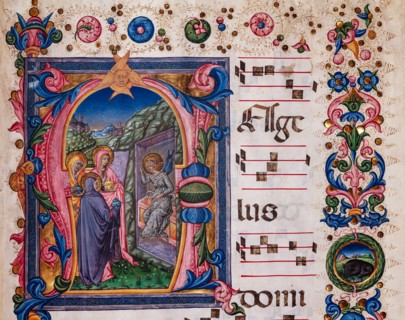 ANge
lus
domi